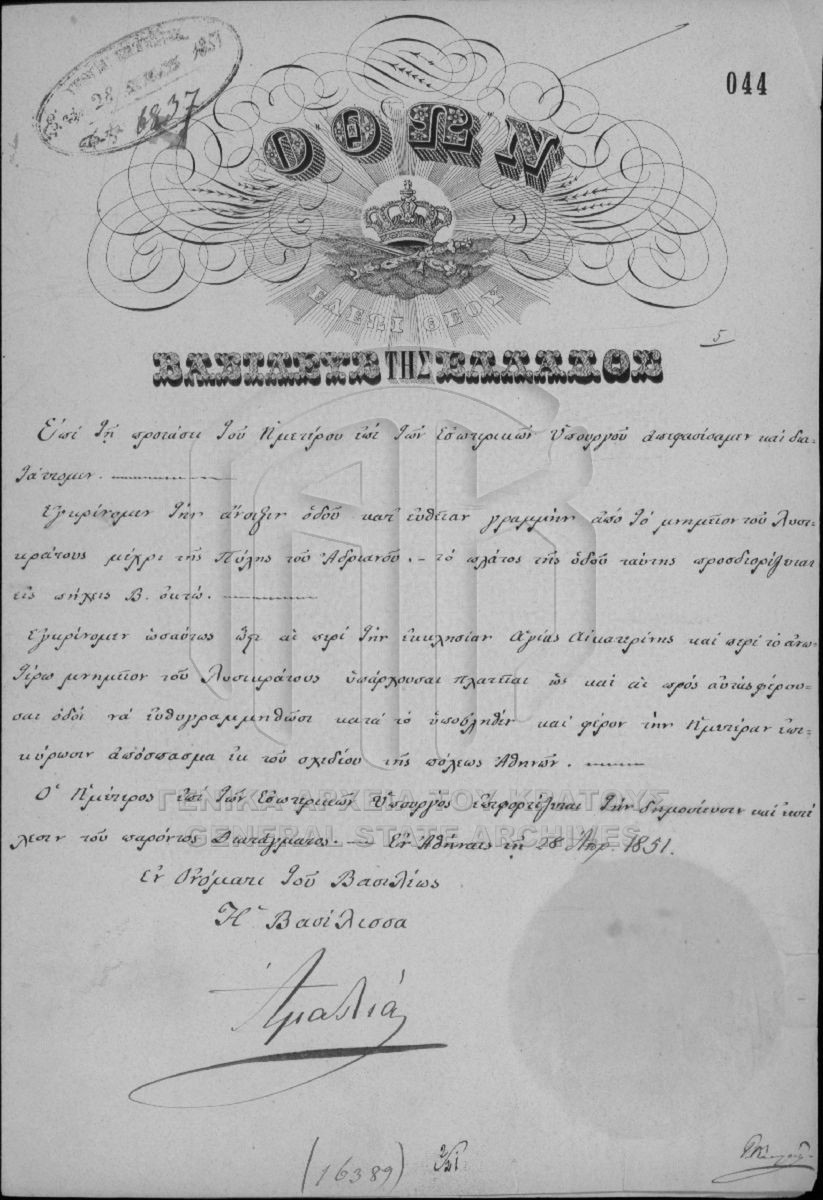 28 1851
6837
044
ΟΘΩΝ
ΕΛΕΩΙ ΘΕΟΥ
5
ΒΑΣΙΛΕΥΣ ΤΗΣ ΕΛΛΑΔΟΣ
Ἐπὶ τῇ προτάσει τοῦ Ἡμετέρου ἐπὶ τῶν Ἐσωτερικῶν Ὑπουργοῦ ἀπεφασίσαμεν καὶ δια-
τάττομεν.
Ἐγκρίνομεν τὴν ἄνοιξιν ὁδοῦ κατ' εὐθεῖαν γραμμὴν ἀπὸ τὸ μνημεῖον τοῦ Λυσι-
κράτους μέχρι τῆς Πύλης τοῦ Ἀδριανοῦ. – τὸ πλάτος τῆς ὁδοῦ ταύτης προσδιορίζεται
εἰς πήχεις Β. ὀκτώ.
Ἐγκρίνομεν ὡσαύτως ὥστε αἱ περὶ τὴν ἐκκλησίαν Ἁγίας Αἰκατερίνης καὶ περὶ τὸ ἀνω-
τέρω μνημεῖον τοῦ Λυσικράτους ὑπάρχουσαι πλατεῖαι ὡς καὶ αἱ πρὸς αὐτὰς φέρου-
σαι ὁδοὶ νὰ εὐθυγραμμηθῶσι κατὰ τὸ ὑποβληθὲν καὶ φέρον τὴν Ἡμετέραν ἐπι-
κύρωσιν ἀπόσπασμα ἐκ τοῦ σχεδίου τῆς πόλεως Ἀθηνῶν.
Ὁ Ἡμέτερος ἐπὶ τῶν Ἐσωτερικῶν Ὑπουργὸς ἐπιφορτίζεται τὴν δημοσίευσιν καὶ ἐκτέ-
λεσιν τοῦ παρόντος Διατάγματος. – Ἐν Ἀθήναις τῇ 28 Ἀπρ. 1851.
ΓΕΝΙΚΑ ΑΡΧΕΙΑ ΤΟΥ ΚΡΑΤΟΥΣ
GENERAL STATE ARCHIVES
Ἐν Ὀνόματι τοῦ Βασιλέως
Ἡ Βασίλισσα
Ἀμαλία
(16389)